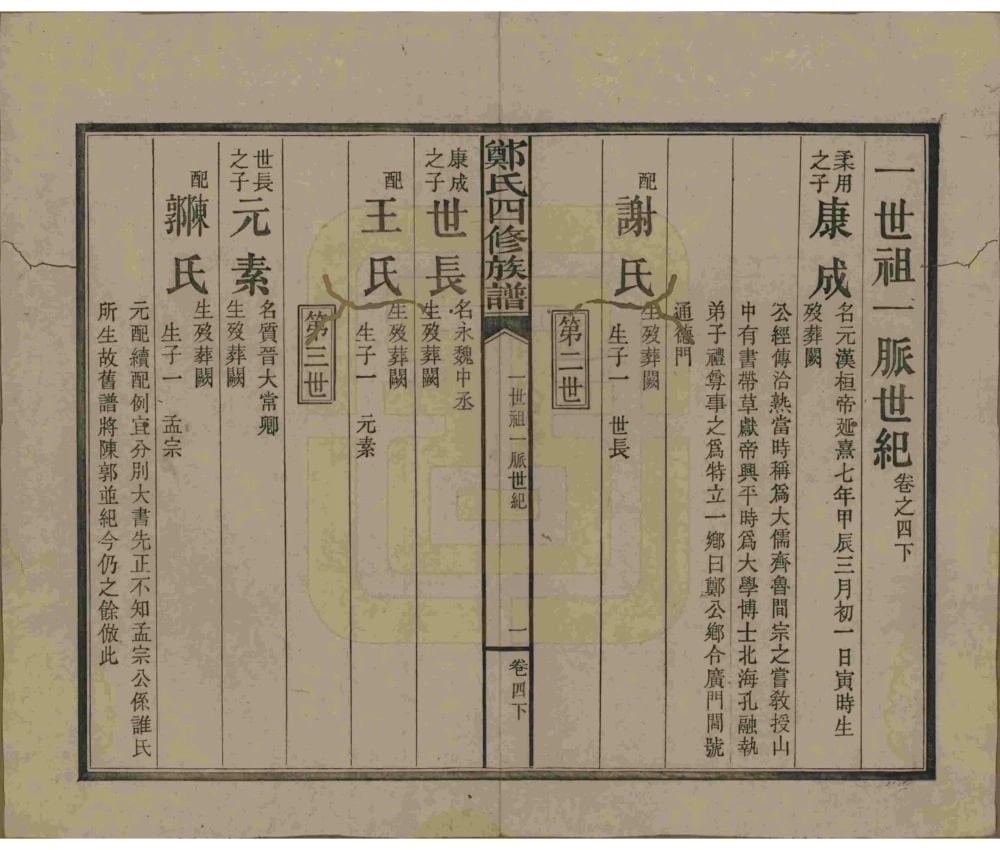 一世祖一脈世紀卷之四下
柔用之子 康成 名元漢桓帝延熹七年甲辰三月初一日寅時生
歿葬闕
公經傳洽熟當時稱爲大儒齊魯間宗之嘗敎授山
中有書帶草獻帝興平時爲大學博士北海孔融執
弟子禮尊事之爲特立一鄉曰鄭公鄉令廣門閭號
通德門
配 謝氏 生歿葬闕
生子一 世長
第二世
鄭氏四修族譜 一世祖一脈世紀 一 卷四下
康成之子 世長 名永魏中丞
生歿葬闕
配 王氏 生歿葬闕
生子一 元素
第三世
世長之子 元素 名質晉大常卿
生歿葬闕
配 陳郭氏 生歿葬闕
生子一 孟宗
元配續配例宜分別大書先正不知孟宗公係誰氏
所生故舊譜將陳郭並紀今仍之餘倣此